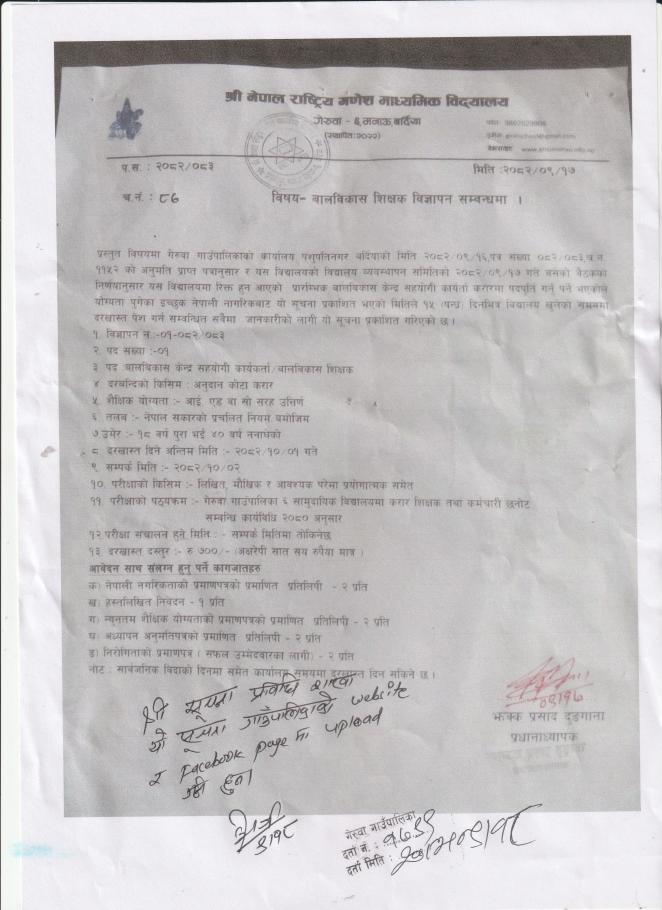 श्री नेपाल राष्ट्रिय गणेश माध्यमिक विद्यालय
गेरुवा - ६ मनाऊ बर्दिया
(स्थापित:२०२२)
प.स.: २०८२/०८३
मिति :२०८२/०९/१७
च.नं.: ८६
विषय- बालविकास शिक्षक विज्ञापन सम्वन्धमा ।
प्रस्तुत विषयमा गेरुवा गाउँपालिकाको कार्यालय पशुपतिनगर बर्दियाको मिति २०८२/०९/१६,पत्र संख्या ०८२/०८३,च.न.
११५२ को अनुमति प्राप्त पत्रानुसार र यस विद्यालयको विद्यालय व्यवस्थापन समितिको २०८२/०९/१७ गते बसेको बैठकको
निर्णयानुसार यस विद्यालयमा रिक्त हुन आएको प्रारम्भिक बालविकास केन्द्र सहयोगी कार्यकर्ता करारमा पदपुर्ति गर्नु पर्ने भएकोले
योग्यता पुगेका इच्छुक नेपाली नागरिकबाट यो सूचना प्रकाशित भएको मितिले १५ (पन्ध्र) दिनभित्र विद्यालय खुलेको समयमा
दरखास्त पेश गर्न सम्वन्धित सबैमा जानकारीको लागी यो सूचना प्रकाशित गरिएको छ ।
१. विज्ञापन न.:-०१-०८२/०८३
२. पद संख्या :-०१
३ पद :बालबिकास केन्द्र सहयोगी कार्यकर्ता/बालबिकास शिक्षक
४ दरबन्दिको किसिम : अनुदान कोटा करार
५. शैक्षिक योग्यता :- आई. एड वा सो सरह उत्तिर्ण
६. तलब :- नेपाल सकारको प्रचलित नियम बमोजिम
७.उमेर :- १८ वर्ष पुरा भई ४० बर्ष ननाघेको
८. दरखास्त दिने अन्तिम मिति :- २०८२/१०/०१ गते
९. सम्पर्क मिति :- २०८२/१०/०२
१०. परीक्षाको किसिम :- लिखित, मौखिक र आवश्यक परेमा प्रयोगात्मक समेत
११. परीक्षाको पाठ्यक्रम :- गेरुवा गाउँपालिका ६ सामुदायिक विद्यालयमा करार शिक्षक तथा कर्मचारी छनोट
सम्वन्धि कार्यविधि २०८० अनुसार
१२.परीक्षा संचालन हुने मिति : - सम्पर्क मितिमा तोकिनेछ
१३. दरखास्त दस्तुर :- रु ७००/- (अक्षरेपी सात सय रुपैया मात्र )
आवेदन साथ संलग्न हुनु पर्ने कागजातहरु
क) नेपाली नगरिकताको प्रमाणपत्रको प्रमाणित प्रतिलिपी - २ प्रति
ख) हस्तलिखित निवेदन - १ प्रति
ग) न्यूनतम शैक्षिक योग्यताको प्रमाणपत्रको प्रमाणित प्रतिलिपी - २ प्रति
घ) अध्यापन अनुमतिपत्रको प्रमाणित प्रतिलिपी - २ प्रति
ङ) निरोगिताको प्रमाणपत्र ( सफल उम्मेदवारका लागी ) - २ प्रति
नोट : सार्वजनिक विदाको दिनमा समेत कार्यालय समयमा दरखास्त दिन सकिने छ ।
श्री सूचना प्रविधि शाखा
यो सूचना गाउँपालिकाको website
र Facebook page मा upload
गर्नु हुन।
०९/१७
झक्क प्रसाद ढुङ्गाना
प्रधानाध्यापक
९/१८
गेरुवा गाउँपालिका
दर्ता नं. :
दर्ता मिति :